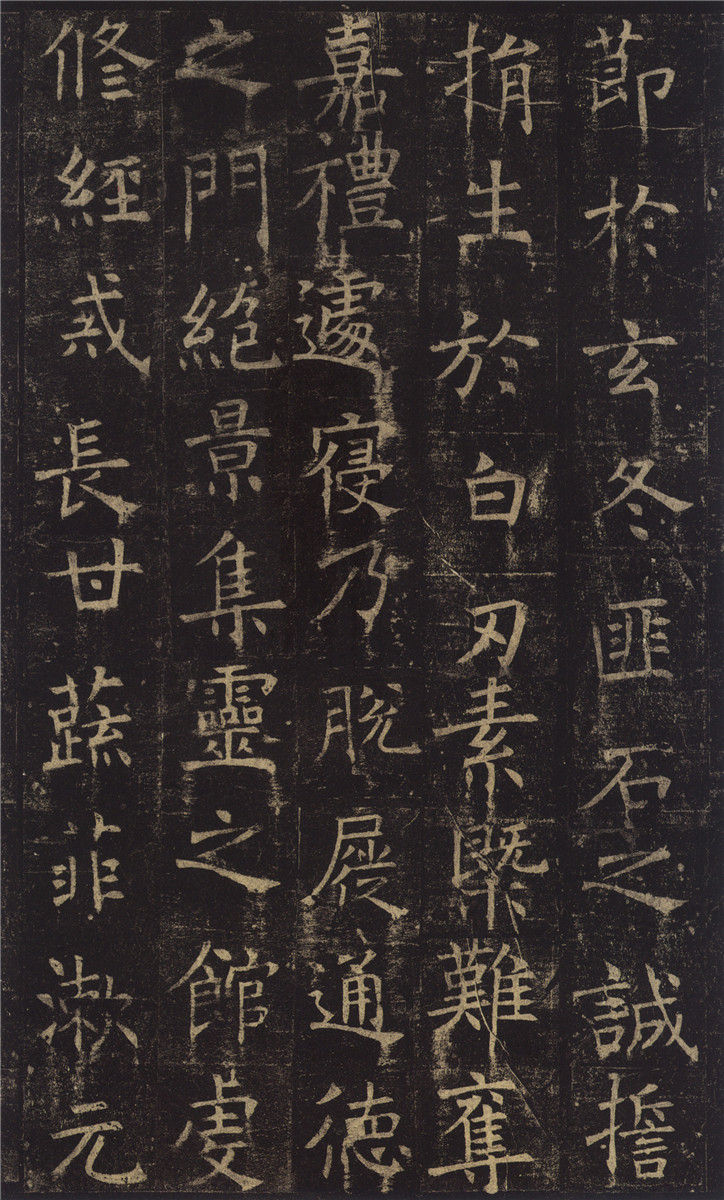 節於玄冬匪石之誠擔
捐生於白刃素槩難奪
嘉禮遽寢乃脫屣通德
之門絶景集靈之館虔
修經戒長甘蔬菲漱元